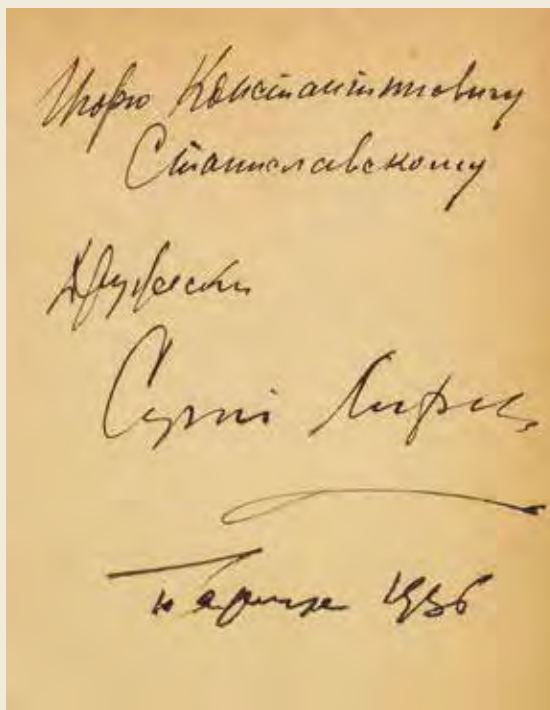 Игорю Константиновичу
Станиславскому
Дружески
Сергѣй Лифарь
Парижъ 1936